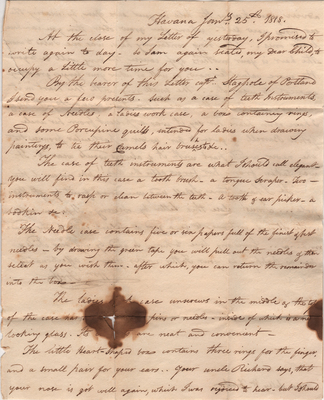 Havana Jany. 25th 1815.
At the close of my Letter of yesterday, I promised to
write again to day. So I am again seated my Dear Child, to
occupy a little more time for you ..
By the bearer of this Letter Capt. Stagpole of Portland
I send you a few presents. Such as a case of teeth Instruments,
a case of Needles, a ladies work case, a box containing rings,
and some Porcupine quills, intended for ladies when drawing
paintings, to tie their Camels hair brushes to.
The case of teeth instruments are what I should call elegant
you will find in this case a tooth brush - a tongue scraper - two
instruments to rasp or clean between the teeth - a ear picker - a
The Needle case contains five or six papers full of the finest & best
needles - by drawing the green tape you will pull out the needles & then
select as you wish them - after which, you can return the remainder
into the box -
The ladies case unscrews in the middle
of the case pins or needles - inside of which is a
looking glass - are neat and convenient -
The little Heart-shaped box contains three rings for the finger,
and a small pair for your ears .. Your uncle Richard says, that
your nose is got well again, which I was rejoiced to hear - but I should